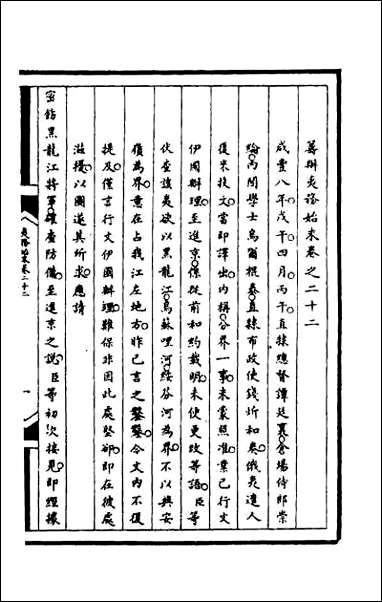 籌辦夷務始末卷之二十二
咸豐八年戊午四月丙午直隸總督譚廷襄倉場侍郎崇
綸內閣學士烏爾棍泰直隸布政使錢炘和奏俄夷遣人
復來投文當即譯出內稱分界一事未蒙照准業已行文
伊國辦理至進京係從前和約載明未便更改等語臣等
伏查該夷欲以黑龍江烏蘇哩河綏芬河為界不以興安
嶺為界意在占我江左地方昨已言之鑿鑿今文內不復
提及僅言行文伊國辦理難保非因此處堅卻即在彼處
滋擾以圖遂其所求應請
密飭黑龍江將軍確查防備至進京之說臣等初次接見即經據
夷務始末卷二十二
一